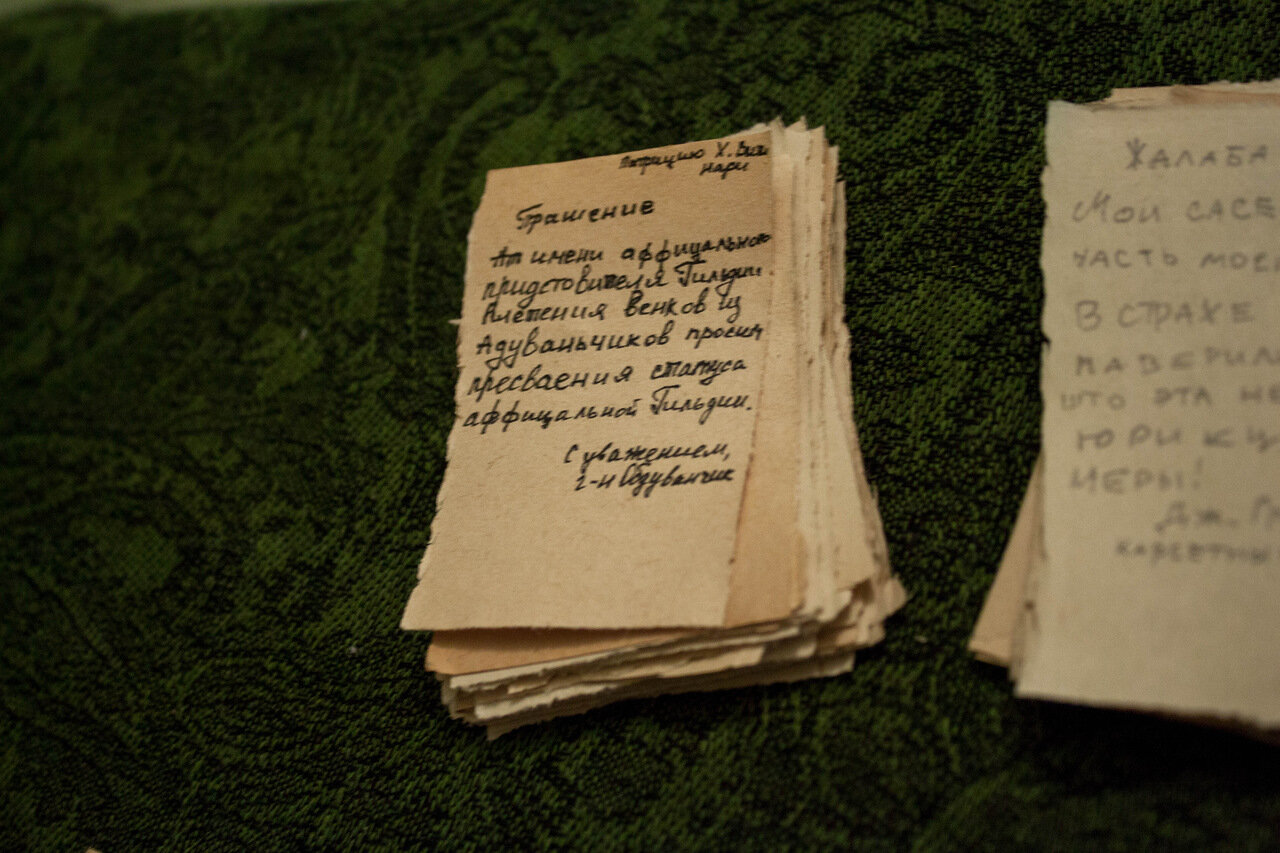 Патрицию Х. Вити
нари
Прашение
Ат имени аффицального
придстовителя Гильдии
Плетения Венков из
Адуванчиков просим
пресваения статуса
аффицальной Гильдии.
С уважением,
г-н Одуванчик
ЖАЛАБА
МОЙ САСЕ
ЧАСТЬ МОЕ
В СТРАХЕ
ПАВЕРИЛ
ШТО ЭТА НЕ
ЮРИКЦ
МЕРЫ!
ДЖ. Г